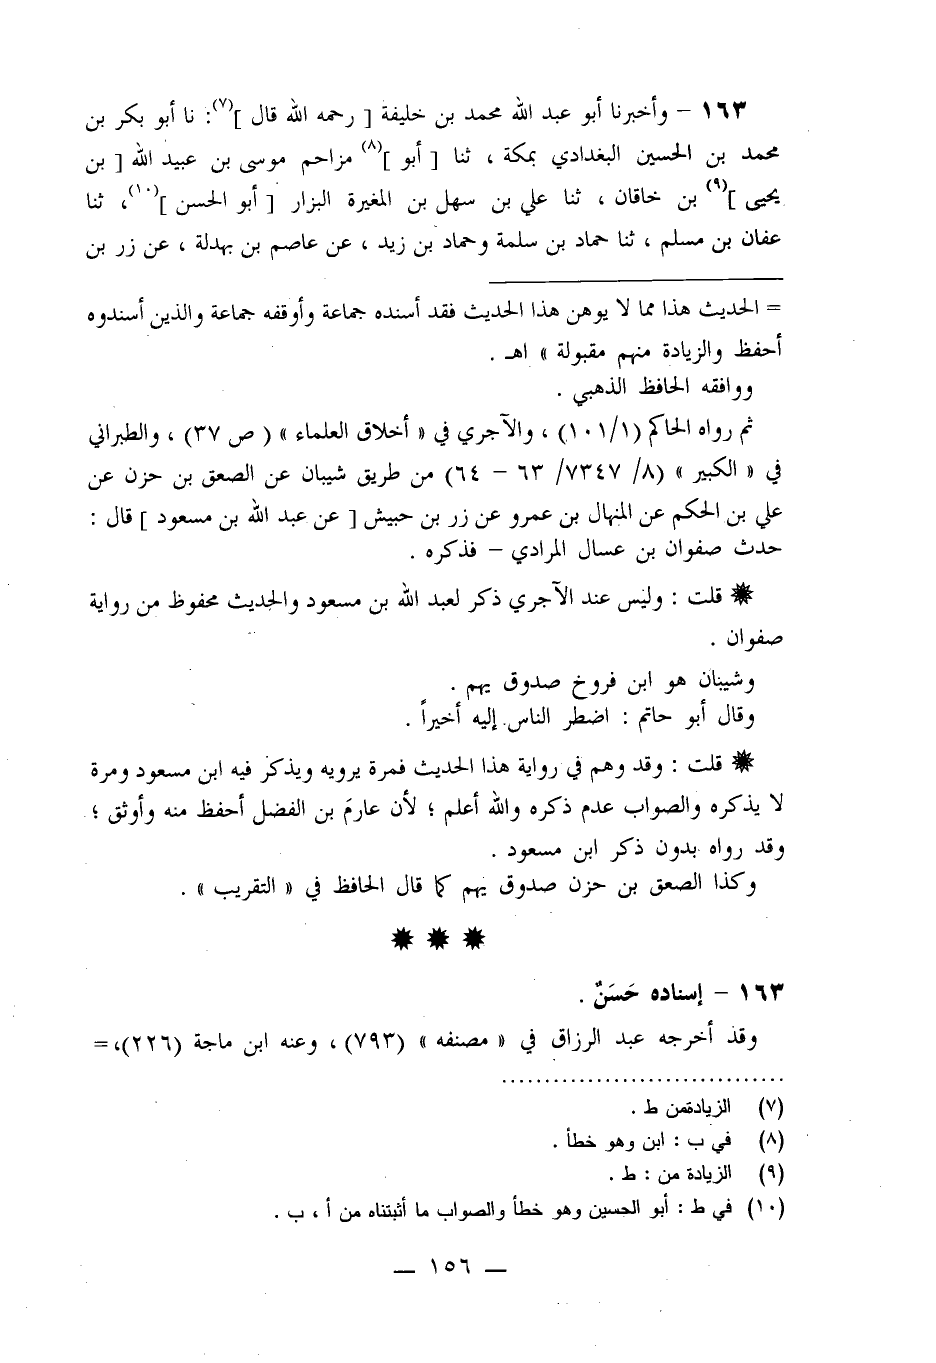 ١٦٣ – وأخبرنا أبو عبد الله محمد بن خليفة [ رحمه الله قال ](٧): نا أبو بكر بن
محمد بن الحسين البغدادي بمكة ، ثنا [ أبو ](٨) مزاحم موسى بن عبيد الله [ بن
يحيى ](٩) بن خاقان ، ثنا علي بن سهل بن المغيرة البزار [ أبو الحسن ](١٠)، ثنا
عفان بن مسلم ، ثنا حماد بن سلمة وحماد بن زيد ، عن عاصم بن بهدلة ، عن زر بن
= الحديث هذا مما لا يوهن هذا الحديث فقد أسنده جماعة وأوقفه جماعة والذين أسندوه
أحفظ والزيادة منهم مقبولة » اهـ .
ووافقه الحافظ الذهبي .
ثم رواه الحاكم (١٠١/١) ، والآجري في « أخلاق العلماء » ( ص ٣٧) ، والطبراني
في « الكبير » (٨/ ٧٣٤٧/ ٦٣ – ٦٤) من طريق شيبان عن الصعق بن حزن عن
علي بن الحكم عن المنهال بن عمرو عن زر بن حبيش [ عن عبد الله بن مسعود ] قال :
حدث صفوان بن عسال المرادي – فذكره .
✸ قلت : وليس عند الآجري ذكر لعبد الله بن مسعود والحديث محفوظ من رواية
صفوان .
وشيبان هو ابن فروخ صدوق يهم .
وقال أبو حاتم : اضطر الناس إليه أخيراً .
✸ قلت : وقد وهم في رواية هذا الحديث فمرة يرويه ويذكر فيه ابن مسعود ومرة
لا يذكره والصواب عدم ذكره والله أعلم ؛ لأن عارمَ بن الفضل أحفظ منه وأوثق ؛
وقد رواه بدون ذكر ابن مسعود .
وكذا الصعق بن حزن صدوق يهم كما قال الحافظ في « التقريب » .
✸ ✸ ✸
١٦٣ – إسناده حَسَنٌ .
وقد أخرجه عبد الرزاق في « مصنفه » (٧٩٣) ، وعنه ابن ماجة (٢٢٦)، =
(٧) الزيادةمن ط .
(٨) في ب : ابن وهو خطأ .
(٩) الزيادة من : ط .
(١٠) في ط : أبو الحسين وهو خطأ والصواب ما أثبتناه من أ ، ب .
— ١٥٦ —